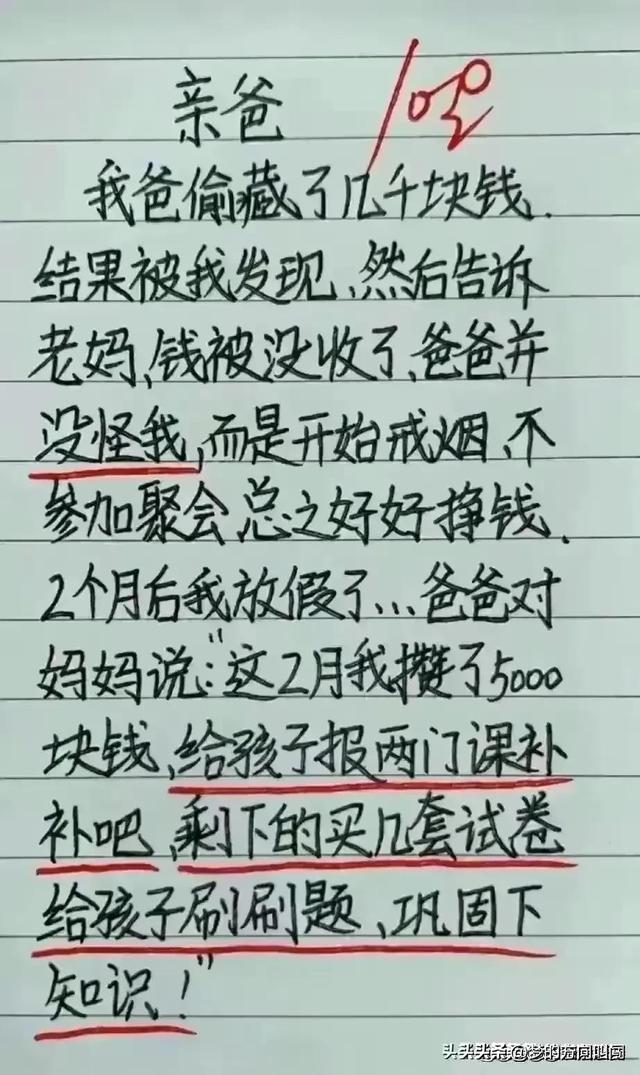 亲爸
我爸偷藏了几千块钱.
结果被我发现、然后告诉
老妈,钱被没收了,爸爸并
没怪我,而是开始戒烟、不
参加聚会总之好好挣钱.
2个月后我放假了...爸爸对
妈妈说:"这2月我攒了5000
块钱,给孩子报两门课补
补吧,剩下的买几套试卷
给孩子刷刷题、巩固下
知识!"